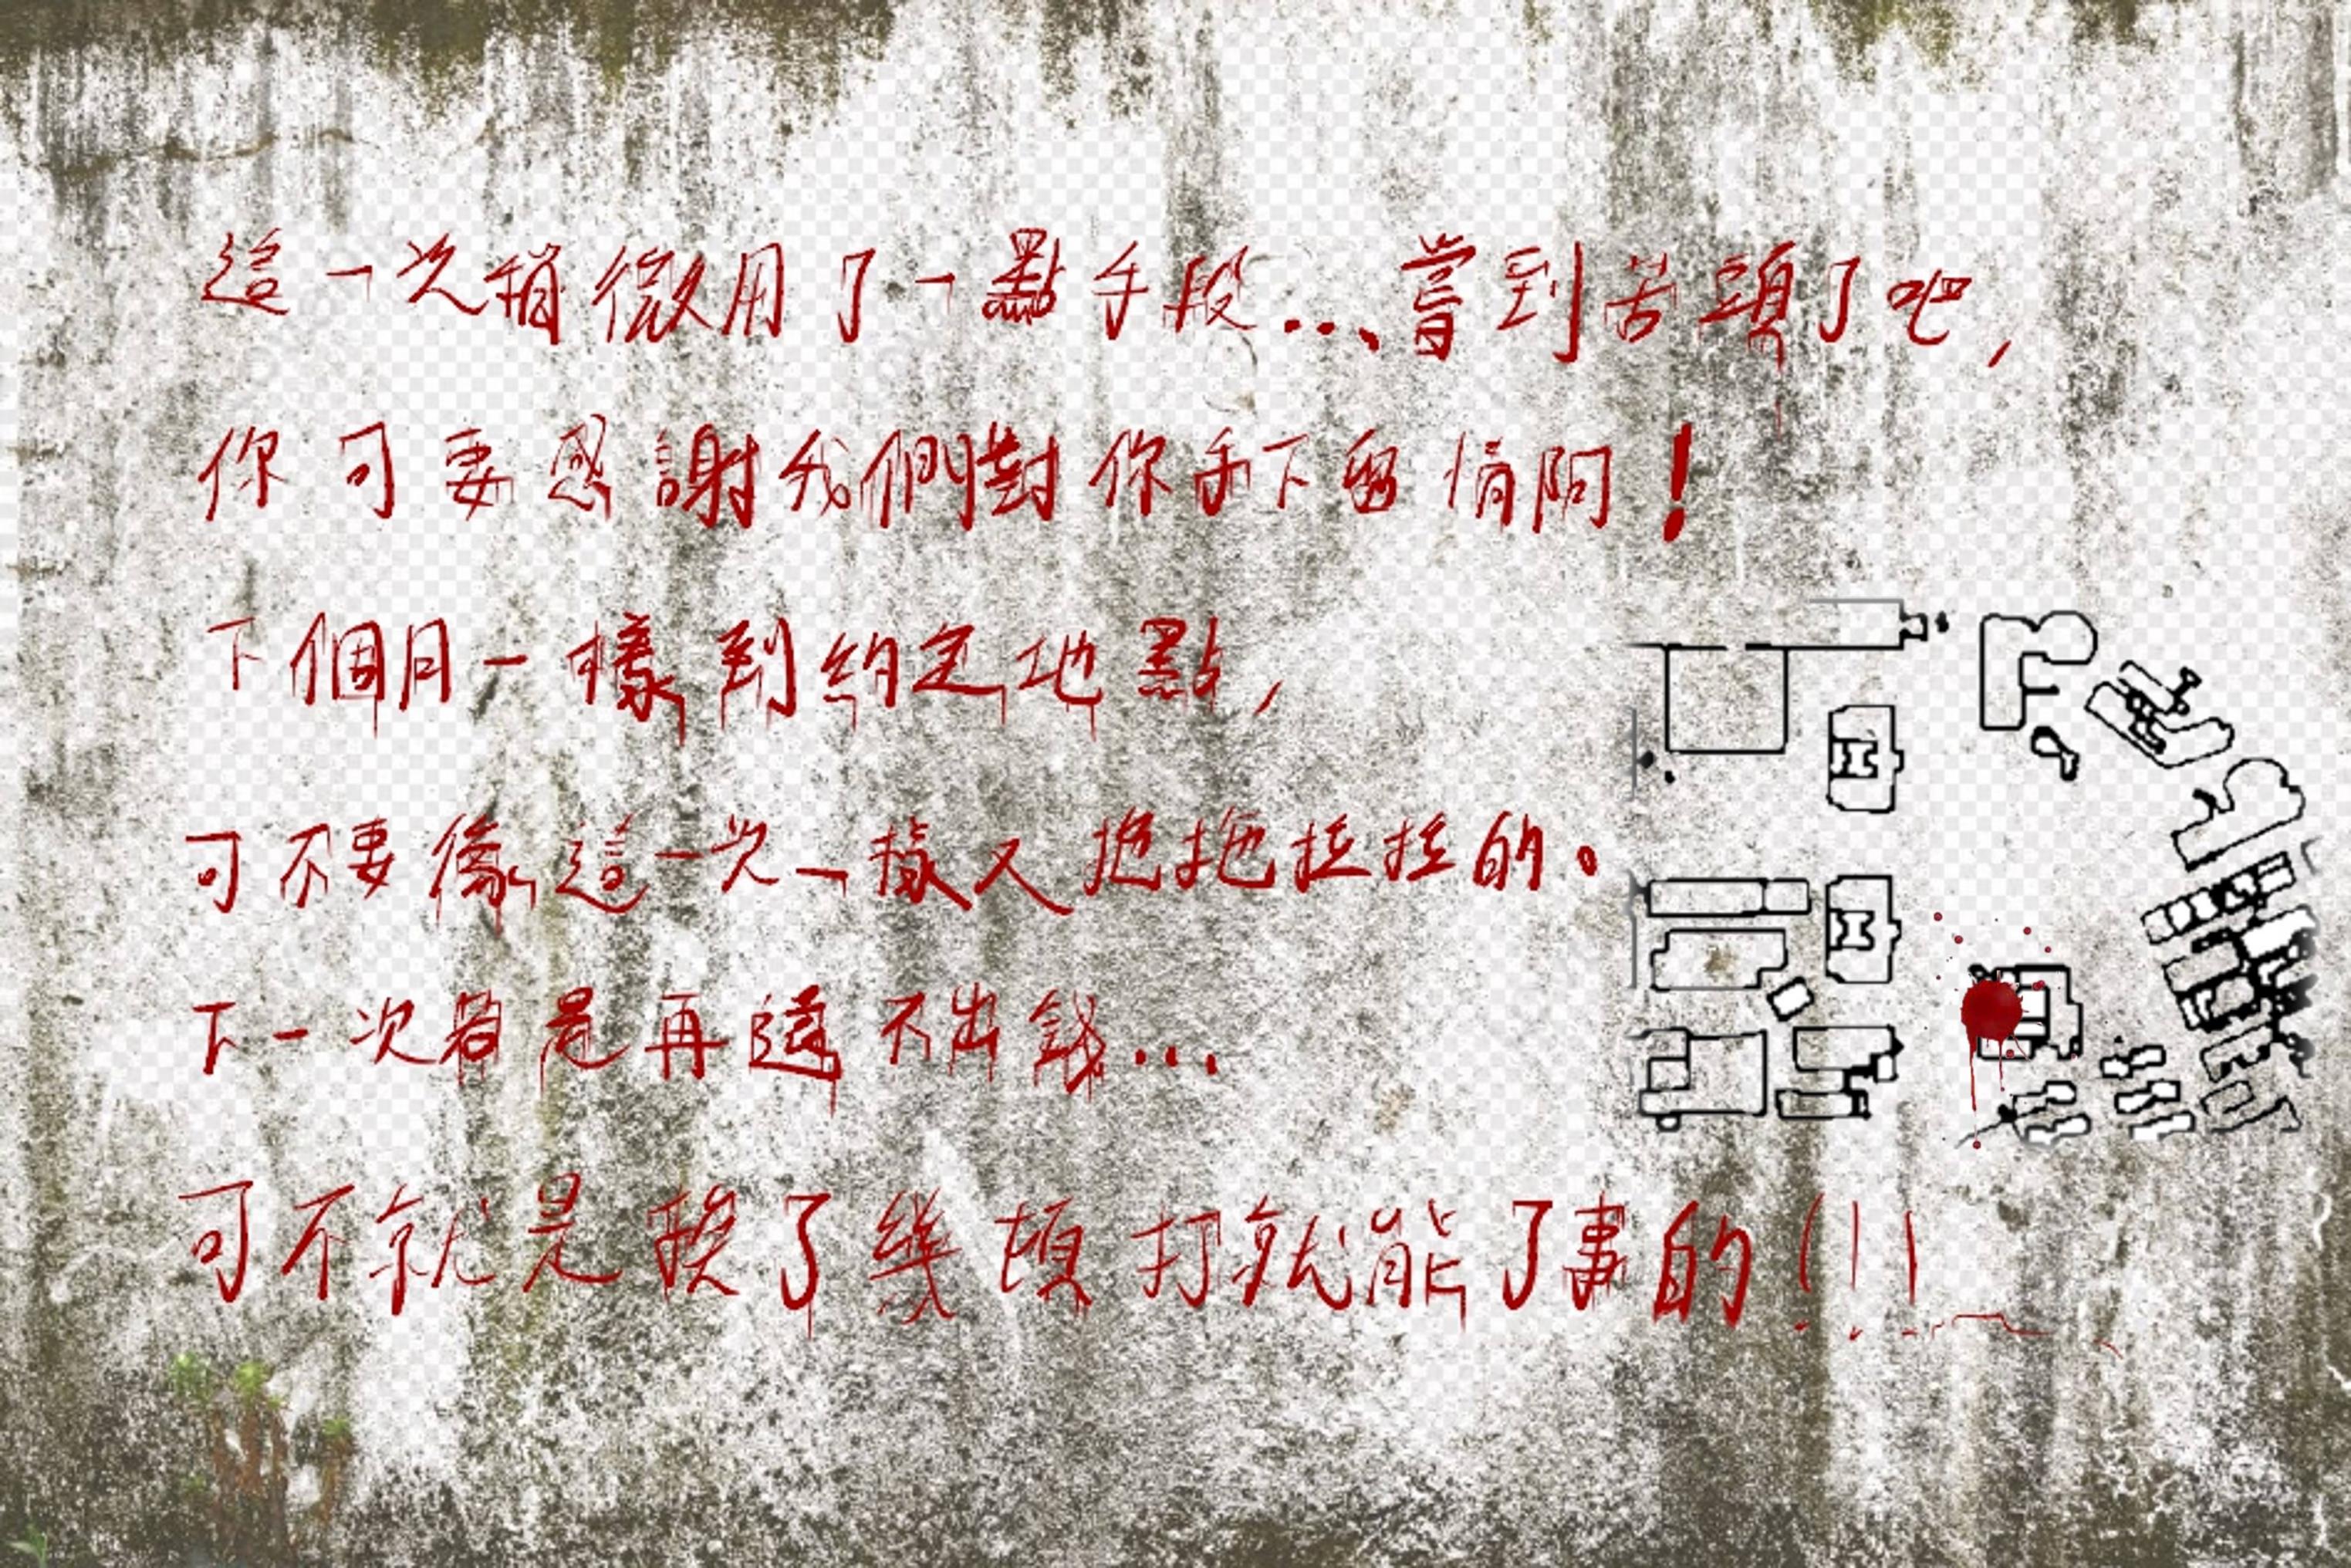 這一次稍微用了一點手段...嘗到苦頭了吧,
你可要感謝我們對你手下留情阿!
下個月一樣到約定地點,
可不要像這一次一樣又拖拖拉拉的。
下一次若是再還不出錢...
可不就是挨了幾頓打就能了事的!!!